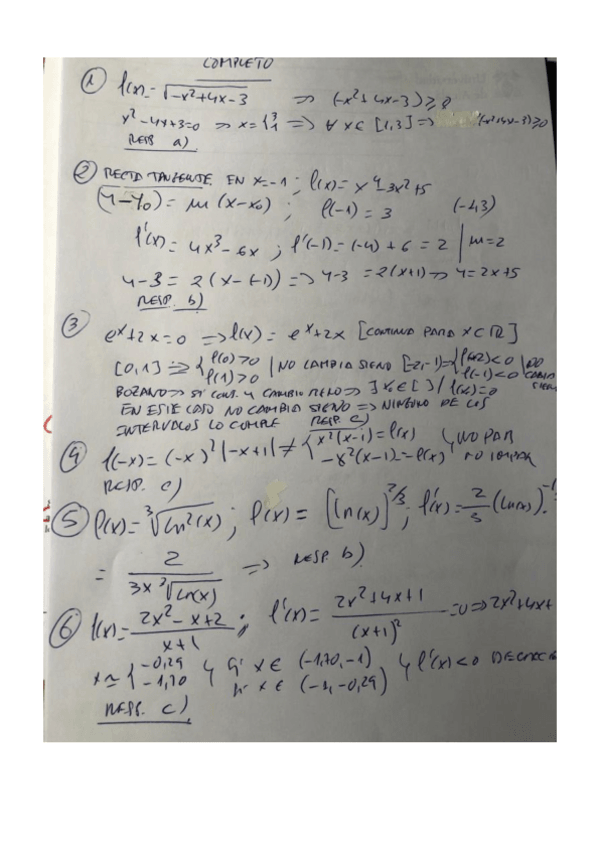 COMPLETO
① f(x)=√(-x²+4x-3) ⇒ (-x²+4x-3)≥0
x²-4x+3=0 ⇒ x={3 1 ⇒ ∀ x∈ [1,3] ⇒ (-x²+4x-3)≥0
RESP. a)
② RECTA TANGENTE EN x=-1; f(x)= x⁴-3x²+5
(y-y₀)= m (x-x₀) ; f(-1) = 3 (-1,3)
f'(x)= 4x³-6x ; f'(-1)=(-4)+6 = 2 | m=2
y-3= 2(x-(-1)) ⇒ y-3 =2(x+1) ⇒ y=2x+5
RESP. b)
③
eˣ+2x=0 ⇒ f(x)= eˣ+2x [CONTINUA PARA x∈ℝ]
[0,1] ⇒ {f(0)>0 f(1)>0 | NO CAMBIA SIGNO [-2,-1] ={f(-2)<0 f(-1)<0 | NO CAMBIA SIGNO
BOLZANO ⇒ SI CONT. Y CAMBIO ⇒ ∃ x∈[ ] / f(x)=0
EN ESTE CASO NO CAMBIA SIGNO ⇒ NINGUNO DE LOS
INTERVALOS LO CUMPLE RESP. c)
④ f(-x)=(-x)²|-x+1| ≠ {x²(x-1)=f(x) -x²(x-1)=-f(x) NO PAR NO IMPAR
RESP. c)
⑤ f(x)=³√(ln²(x)) ; f(x) = [ln(x)]^2/3 ; f'(x)=2/3 (ln(x))^-1
= 2/(3x ³√(ln(x))) ⇒ RESP. b)
⑥ f(x)= (2x²-x+2)/(x+1) ; f'(x)= (2x²+4x+1)/(x+1)² =0 ⇒ 2x²+4x+
x≃{-0,29 -1,70 x∈ (-1,70,-1) x∈ (-1,-0,29) f'(x)<0
RESP. c)